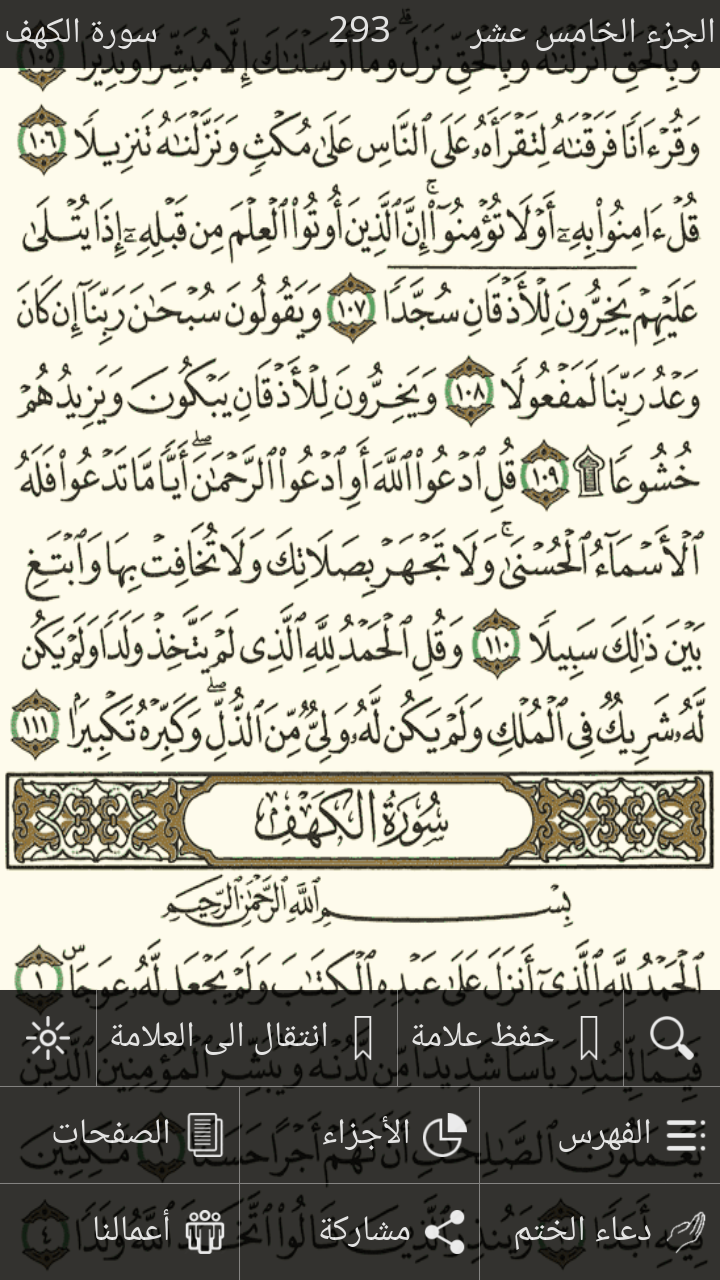 الجزء الخامس عشر 293 سورة الكهف
وَبِالْحَقِّ أَنزَلْنَٰهُ وَبِالْحَقِّ نَزَلَ ۗ وَمَا أَرْسَلْنَٰكَ إِلَّا مُبَشِّرًا وَنَذِيرًا ١٠٥
وَقُرْءَانًا فَرَقْنَٰهُ لِتَقْرَأَهُۥ عَلَى ٱلنَّاسِ عَلَىٰ مُكْثٍ وَنَزَّلْنَٰهُ تَنزِيلًا ١٠٦
قُلْ ءَامِنُوا۟ بِهِۦٓ أَوْ لَا تُؤْمِنُوٓا۟ ۚ إِنَّ ٱلَّذِينَ أُوتُوا۟ ٱلْعِلْمَ مِن قَبْلِهِۦٓ إِذَا يُتْلَىٰ
عَلَيْهِمْ يَخِرُّونَ لِلْأَذْقَانِ سُجَّدًا ١٠٧ وَيَقُولُونَ سُبْحَٰنَ رَبِّنَآ إِن كَانَ
وَعْدُ رَبِّنَا لَمَفْعُولًا ١٠٨ وَيَخِرُّونَ لِلْأَذْقَانِ يَبْكُونَ وَيَزِيدُهُمْ
خُشُوعًا ۩ ١٠٩ قُلِ ٱدْعُوا۟ ٱللَّهَ أَوِ ٱدْعُوا۟ ٱلرَّحْمَٰنَ ۖ أَيًّا مَّا تَدْعُوا۟ فَلَهُ
ٱلْأَسْمَآءُ ٱلْحُسْنَىٰ ۚ وَلَا تَجْهَرْ بِصَلَاتِكَ وَلَا تُخَافِتْ بِهَا وَٱبْتَغِ
بَيْنَ ذَٰلِكَ سَبِيلًا ١١٠ وَقُلِ ٱلْحَمْدُ لِلَّهِ ٱلَّذِى لَمْ يَتَّخِذْ وَلَدًا وَلَمْ يَكُن
لَّهُۥ شَرِيكٌ فِى ٱلْمُلْكِ وَلَمْ يَكُن لَّهُۥ وَلِىٌّ مِّنَ ٱلذُّلِّ ۖ وَكَبِّرْهُ تَكْبِيرًۢا ١١١
سُورَةُ الكَهْفِ
بِسْمِ ٱللَّهِ ٱلرَّحْمَٰنِ ٱلرَّحِيمِ
ٱلْحَمْدُ لِلَّهِ ٱلَّذِىٓ أَنزَلَ عَلَىٰ عَبْدِهِ ٱلْكِتَٰبَ وَلَمْ يَجْعَل لَّهُۥ عِوَجَاۜ ١
حفظ علامة انتقال الى العلامة
قَيِّمًا لِّيُنذِرَ بَأْسًا شَدِيدًا مِّن لَّدُنْهُ وَيُبَشِّرَ ٱلْمُؤْمِنِينَ ٱلَّذِينَ
الفهرس الأجزاء الصفحات
يَعْمَلُونَ ٱلصَّٰلِحَٰتِ أَنَّ لَهُمْ أَجْرًا حَسَنًا ٢ مَّٰكِثِينَ
دعاء الختم مشاركة أعمالنا
فِيهِ أَبَدًا ٣ وَيُنذِرَ ٱلَّذِينَ قَالُوا۟ ٱتَّخَذَ ٱللَّهُ وَلَدًا ٤